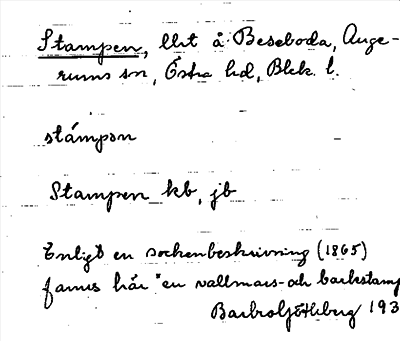 Stampen, llrt å Beseboda, Auge-
rums sn, Östra hd, Blek. l.
stámpən
Stampen kb, jb
Enligt en sockenbeskrivning (1865)
fanns här "en vallmars- och barkstamp
Barbro Götleberg 193